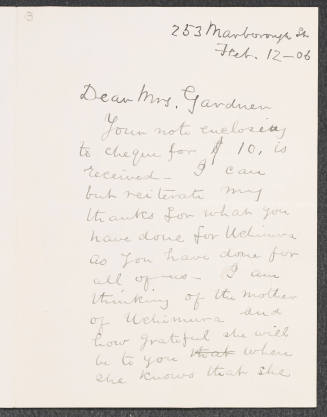 3
253 Marborough St
Feb. 12-06
Dear Mrs. Gardner
Your note enclosing
to cheque for $10. is
received - I can
but reiterate my
thanks for what you
have done for Uchimura
as you have done for
all of us - I am
thinking of the mother
of Uchimura and
how grateful she will
be to you that when
she knows that she